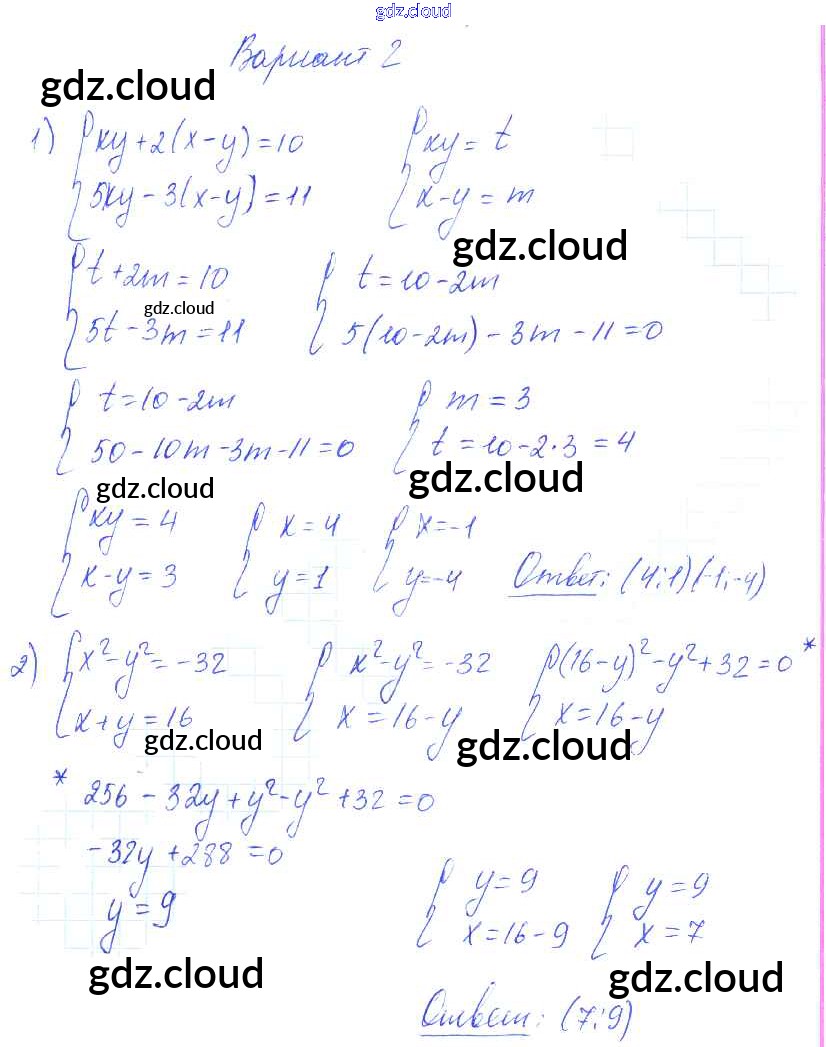 gdz.cloud
Вариант 2
gdz.cloud
1) { xy + 2(x - y) = 10 { xy = t
5xy - 3(x - y) = 11 x - y = m
gdz.cloud
{ t + 2m = 10 { t = 10 - 2m
gdz.cloud
5t - 3m = 11 5(10 - 2m) - 3m - 11 = 0
{ t = 10 - 2m { m = 3
50 - 10m - 3m - 11 = 0 t = 10 - 2·3 = 4
gdz.cloud gdz.cloud
{ xy = 4 { x = 4 { x = -1
x - y = 3 y = 1 y = -4 Ответ: (4;1)(-1;-4)
2) { x² - y² = -32 { x² - y² = -32 { (16 - y)² - y² + 32 = 0 *
x + y = 16 x = 16 - y x = 16 - y
gdz.cloud gdz.cloud
* 256 - 32y + y² - y² + 32 = 0
-32y + 288 = 0
y = 9 { y = 9 { y = 9
x = 16 - 9 x = 7
gdz.cloud gdz.cloud
Ответ: (7;9)